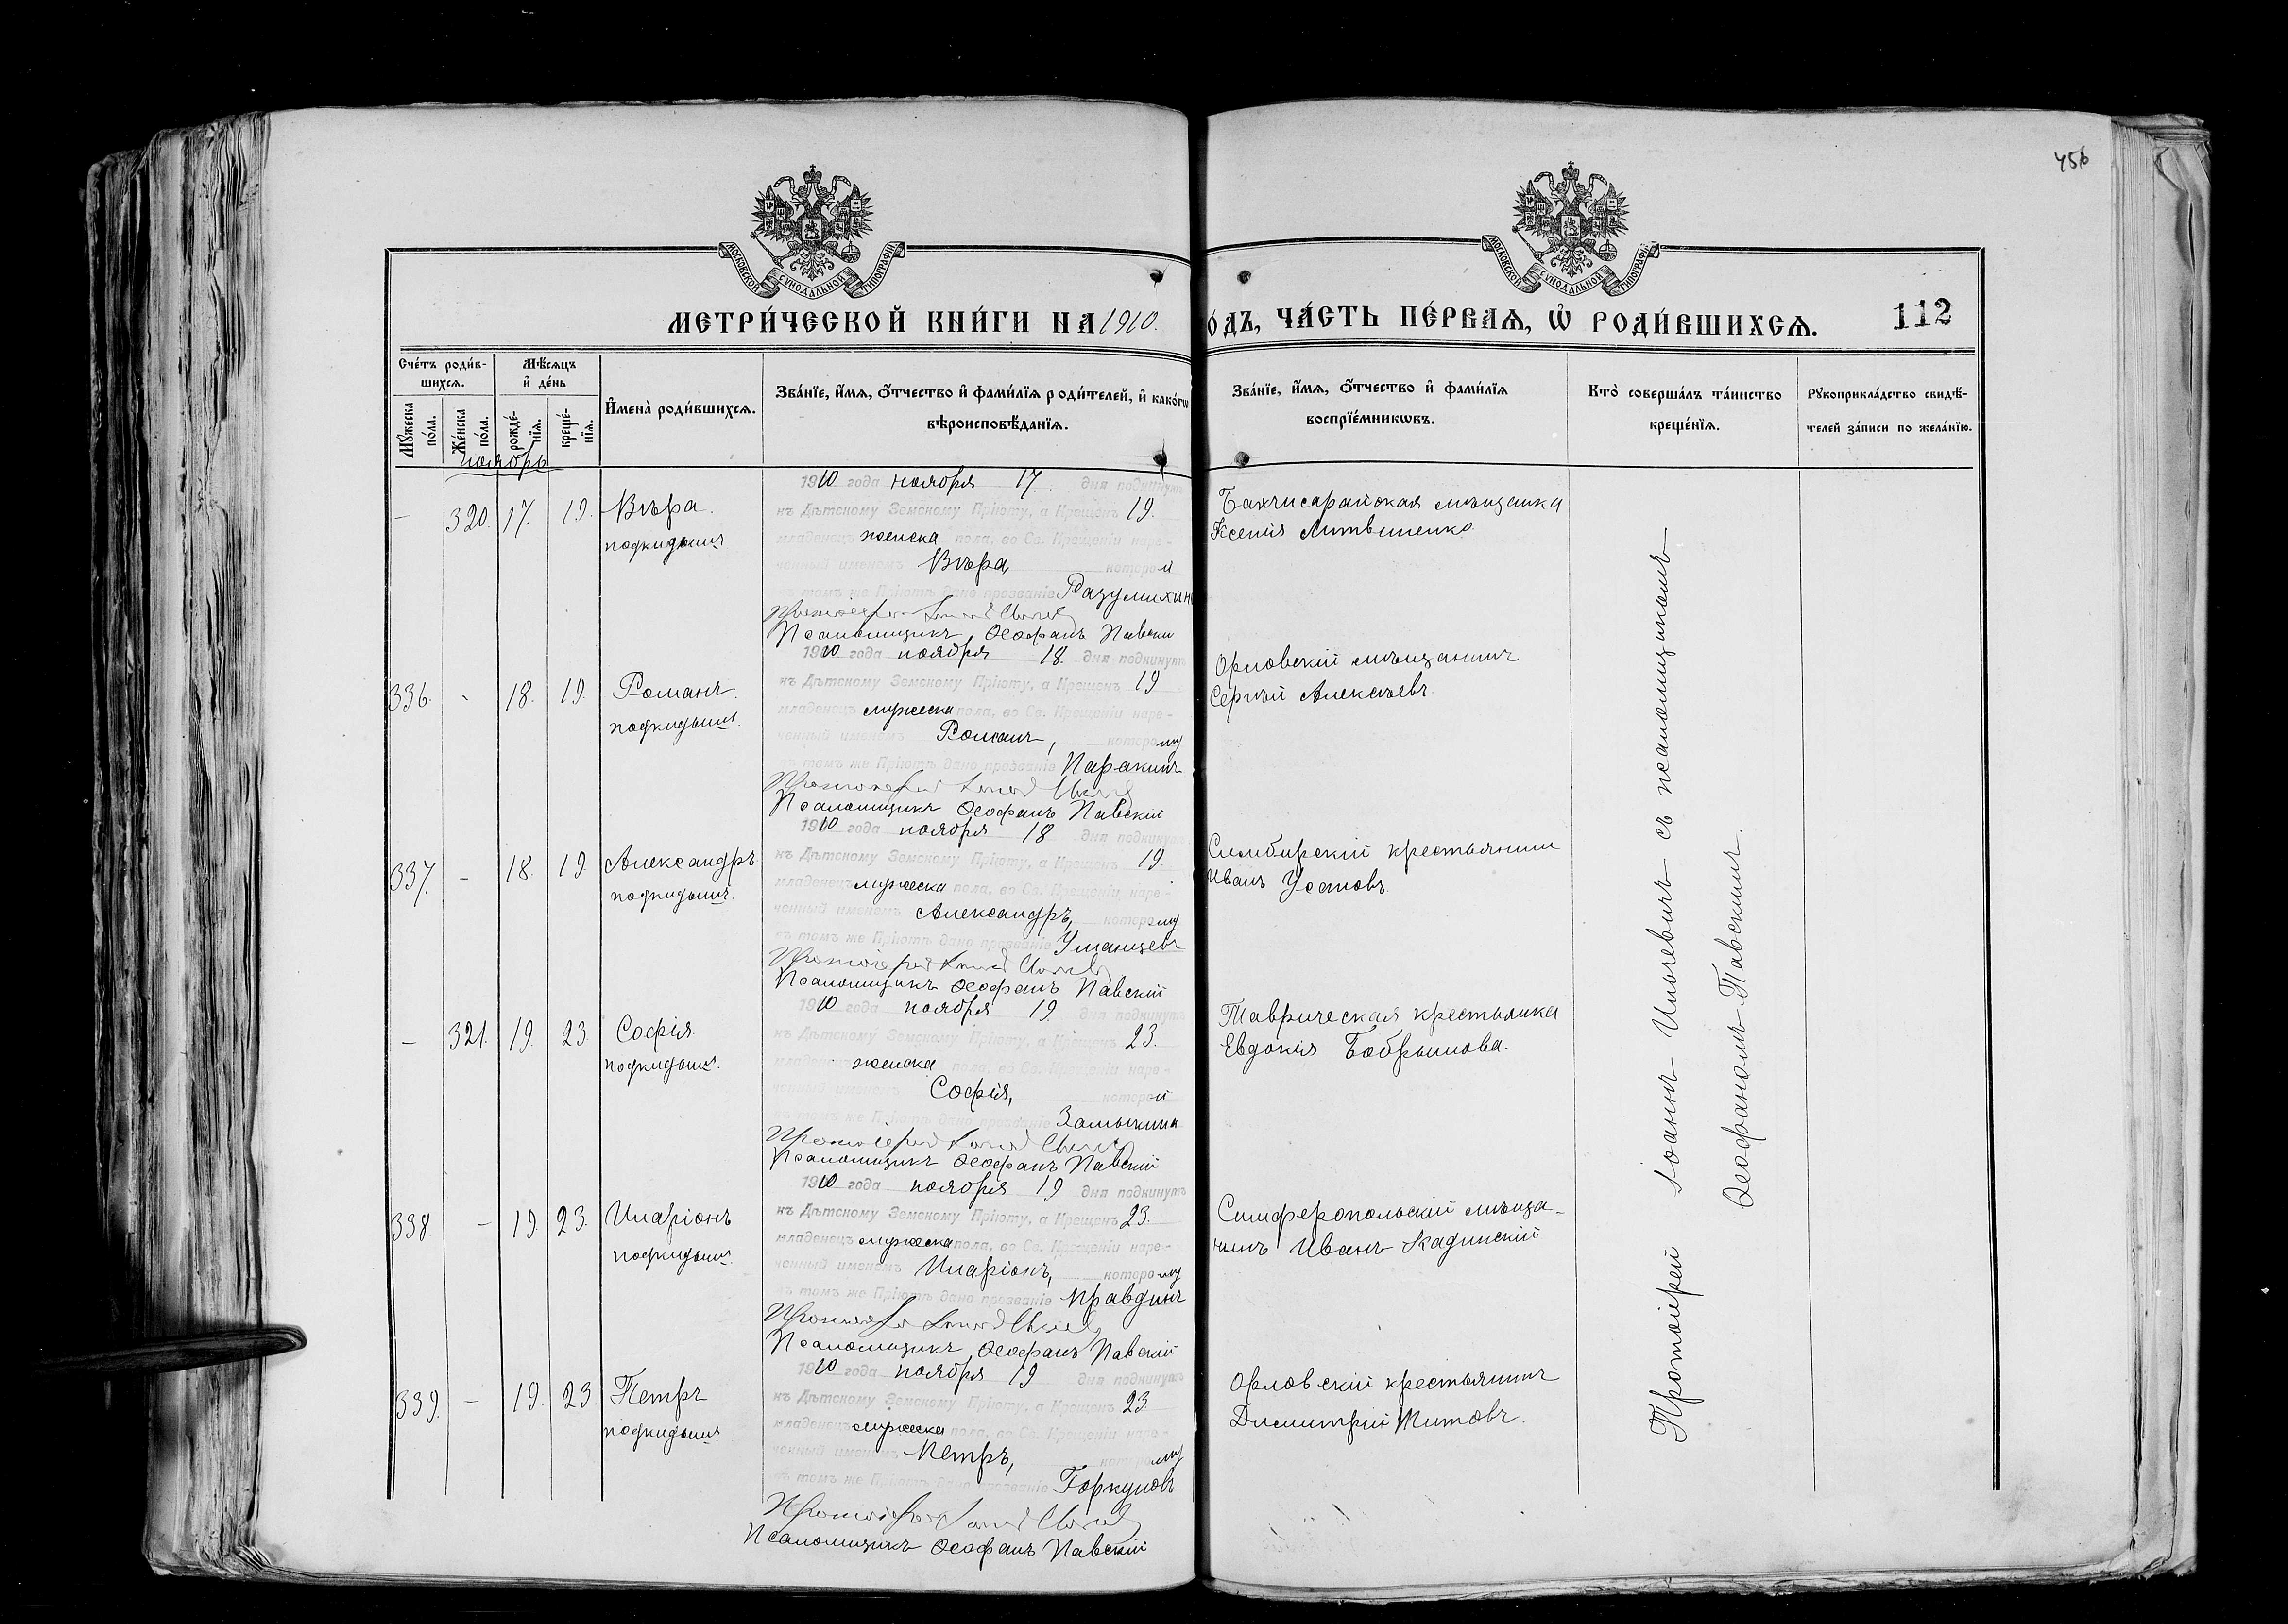 456
МОСКОВСКОЙ СѴНОДАЛЬНОЙ ТИПОГРАФІИ
МОСКОВСКОЙ СѴНОДАЛЬНОЙ ТИПОГРАФІИ
МЕТРИ́ЧЕСКОЙ КНИ́ГИ НА 1910.
О́ДЪ, ЧА́СТЬ ПЕ́РВАѦ, Ѡ҆ РОДИ́ВШИХСѦ.
112
Сче́тъ роди́в-
шихсѧ.
Мѣ́сѧцъ
и҆ де́нь
Мꙋ́жеска
по́ла.
Же́нска
по́ла.
рожде́-
нїѧ.
креще́-
нїѧ.
И҆мена̀ роди́вшихсѧ.
Зва́нїе, и҆́мѧ, ѻ҆́тчество и҆ фами́лїѧ роди́телей, и҆ како́гѡ
вѣроисповѣ́данїѧ.
Зва́нїе, и҆́мѧ, ѻ҆́тчество и҆ фами́лїѧ
воспрїе́мникѡвъ.
Кто̀ соверша́лъ та́инство
креще́нїѧ.
Рꙋкоприкла́дство свидѣ́-
телей за́писи по жела́нїю.
ноябрь
– 320. 17. 19. Вѣра.
подкидышъ
1910 года ноября 17. дня подкинутъ
къ Дѣтскому Земскому Пріюту, а Крещенъ 19.
младенецъ женска пола, во Св. Крещеніи наре-
ченный именемъ Вѣра, которой
въ томъ же Пріютѣ дано прозваніе Разумихин
Псаломщикъ Ѳеофанъ Павски
Бахчисарайская мѣщанка
Ксенія Литвиненко
336. - 18. 19. Романъ.
подкидышъ.
1910 года ноября 18. дня подкинутъ
къ Дѣтскому Земскому Пріюту, а Крещенъ 19
младенецъ мужеска пола, во Св. Крещеніи наре-
ченный именемъ Романъ, которому
въ томъ же Пріютѣ дано прозваніе Паракинъ
Псаломщикъ Ѳеофанъ Павскій
Орловскій мѣщанинъ
Сергѣй Алексѣевъ.
337. – 18. 19. Александръ
подкидышъ.
1910 года ноября 18 дня подкинутъ
къ Дѣтскому Земскому Пріюту, а Крещенъ 19.
младенецъ мужеска пола, во Св. Крещеніи наре-
ченный именемъ Александръ, которому
въ томъ же Пріютѣ дано прозваніе Уманцевъ
Псаломщикъ Ѳеофанъ Павскій
Симбирскій крестьянин
Иванъ
– 321. 19. 23. Софія.
подкидышъ.
1910 года ноября 19. дня подкинутъ
къ Дѣтскому Земскому Пріюту, а Крещенъ 23.
младенецъ женска пола, во Св. Крещеніи наре-
ченный именемъ Софія, которой
въ томъ же Пріютѣ дано прозваніе Замычкина
Псаломщикъ Ѳеофанъ Павскій
Таврическая крестьянка
Евдокія Бобрышова.
338. – 19 23. Иларіонъ
подкидышъ.
1910 года ноября 19 дня подкинутъ
къ Дѣтскому Земскому Пріюту, а Крещенъ 23.
младенецъ мужеска пола, во Св. Крещеніи наре-
ченный именемъ Иларіонъ, которому
въ томъ же Пріютѣ дано прозваніе Правдинъ
Псаломщикъ Ѳеофанъ Павскій
Симферопольскій мѣща-
нинъ Иванъ Кадинскій
339. – 19. 23. Петръ
подкидышъ
1910 года ноября 19 дня подкинутъ
къ Дѣтскому Земскому Пріюту, а Крещенъ 23
младенецъ мужеска пола, во Св. Крещеніи наре-
ченный именемъ Петръ, которому
въ томъ же Пріютѣ дано прозваніе Горкуновъ
Псаломщикъ Ѳеофанъ Павскій
Орловскій крестьянинъ
Димитрій Титовъ.
Протоіерей Іоаннъ Ильчевичъ съ псаломщикомъ
Ѳеофаномъ Павскимъ.